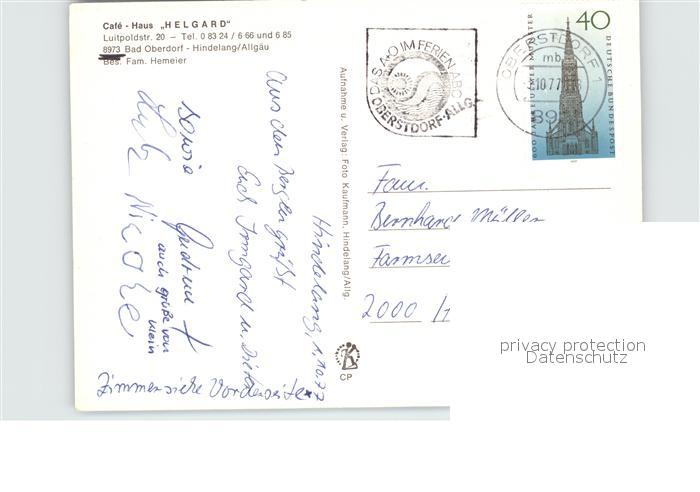 Café - Haus „HELGARD"
Luitpoldstr. 20 – Tel. 0 83 24 / 6 66 und 6 85
8973 Bad Oberdorf - Hindelang/Allgäu
Bes. Fam. Hemeier
DAS A-O IM FERIEN-ABC
OBERSTDORF·ALLG.
OBERSTDORF 1
mb
10.77
89
40
600 JAHRE ULMER MÜNSTER
DEUTSCHE BUNDESPOST
Aufnahme u. Verlag: Foto Kaufmann, Hindelang/Allg.
K
CP
Hindelang, 1.10.77
Aus den Bergen grüßt
Euch Irmgard u. Dieter
Gudrun +
auch grüße von
mein
Nicole
Zimmer siehe Vorderseite x
Fam.
Bernhard Müller
Farmse
2000 /
privacy protection
Datenschutz